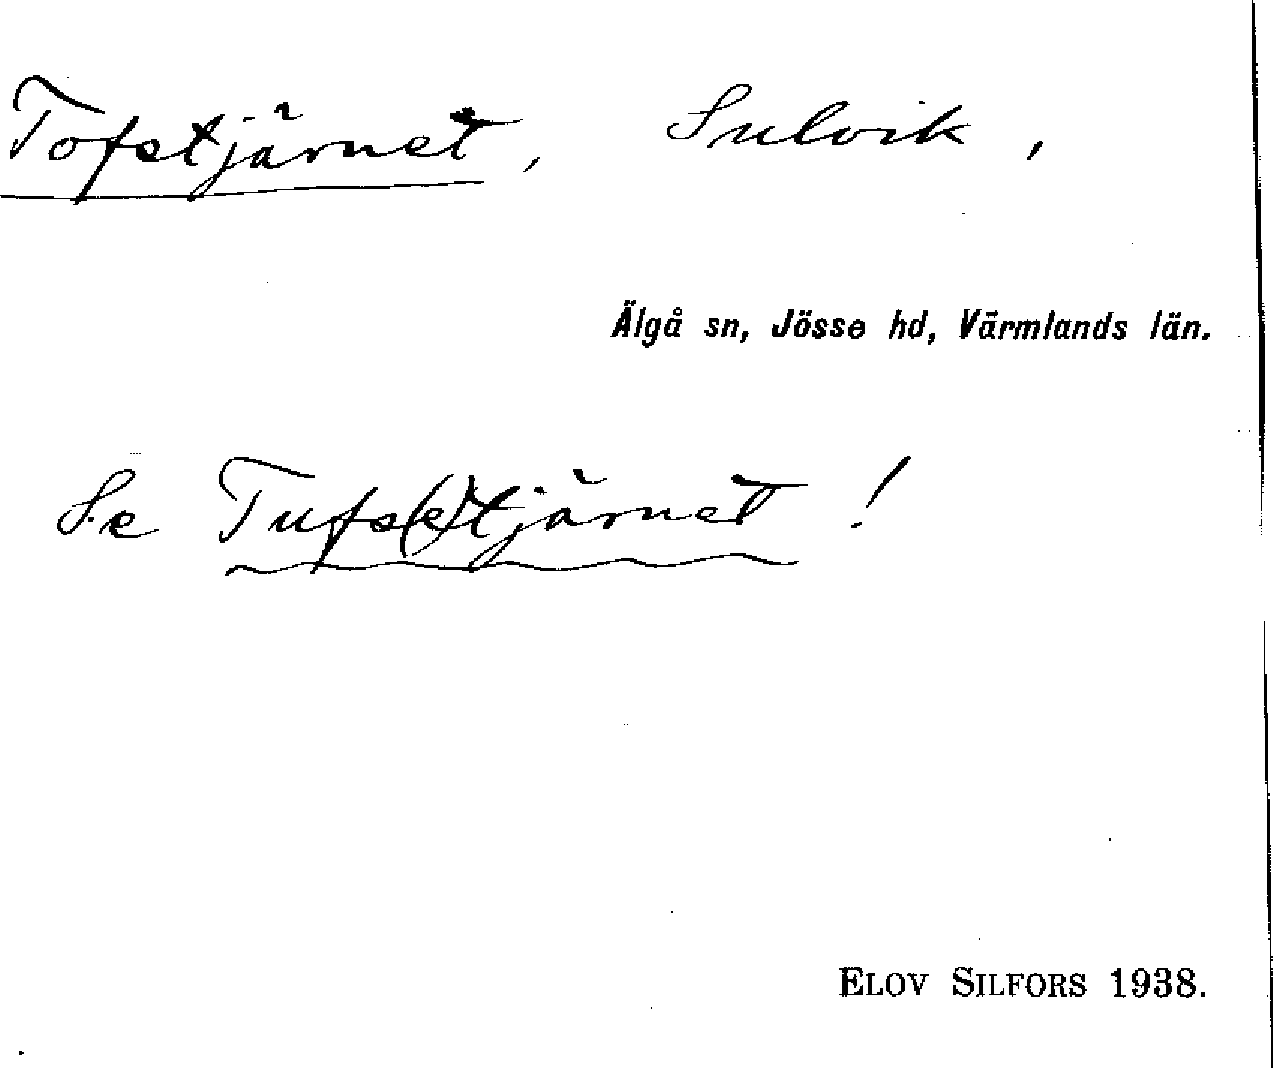 Tofstjärnet, Sulvik,
Älgå sn, Jösse hd, Värmlands län.
Se Tufs(e)tjärnet!
ELOV SILFORS 1938.